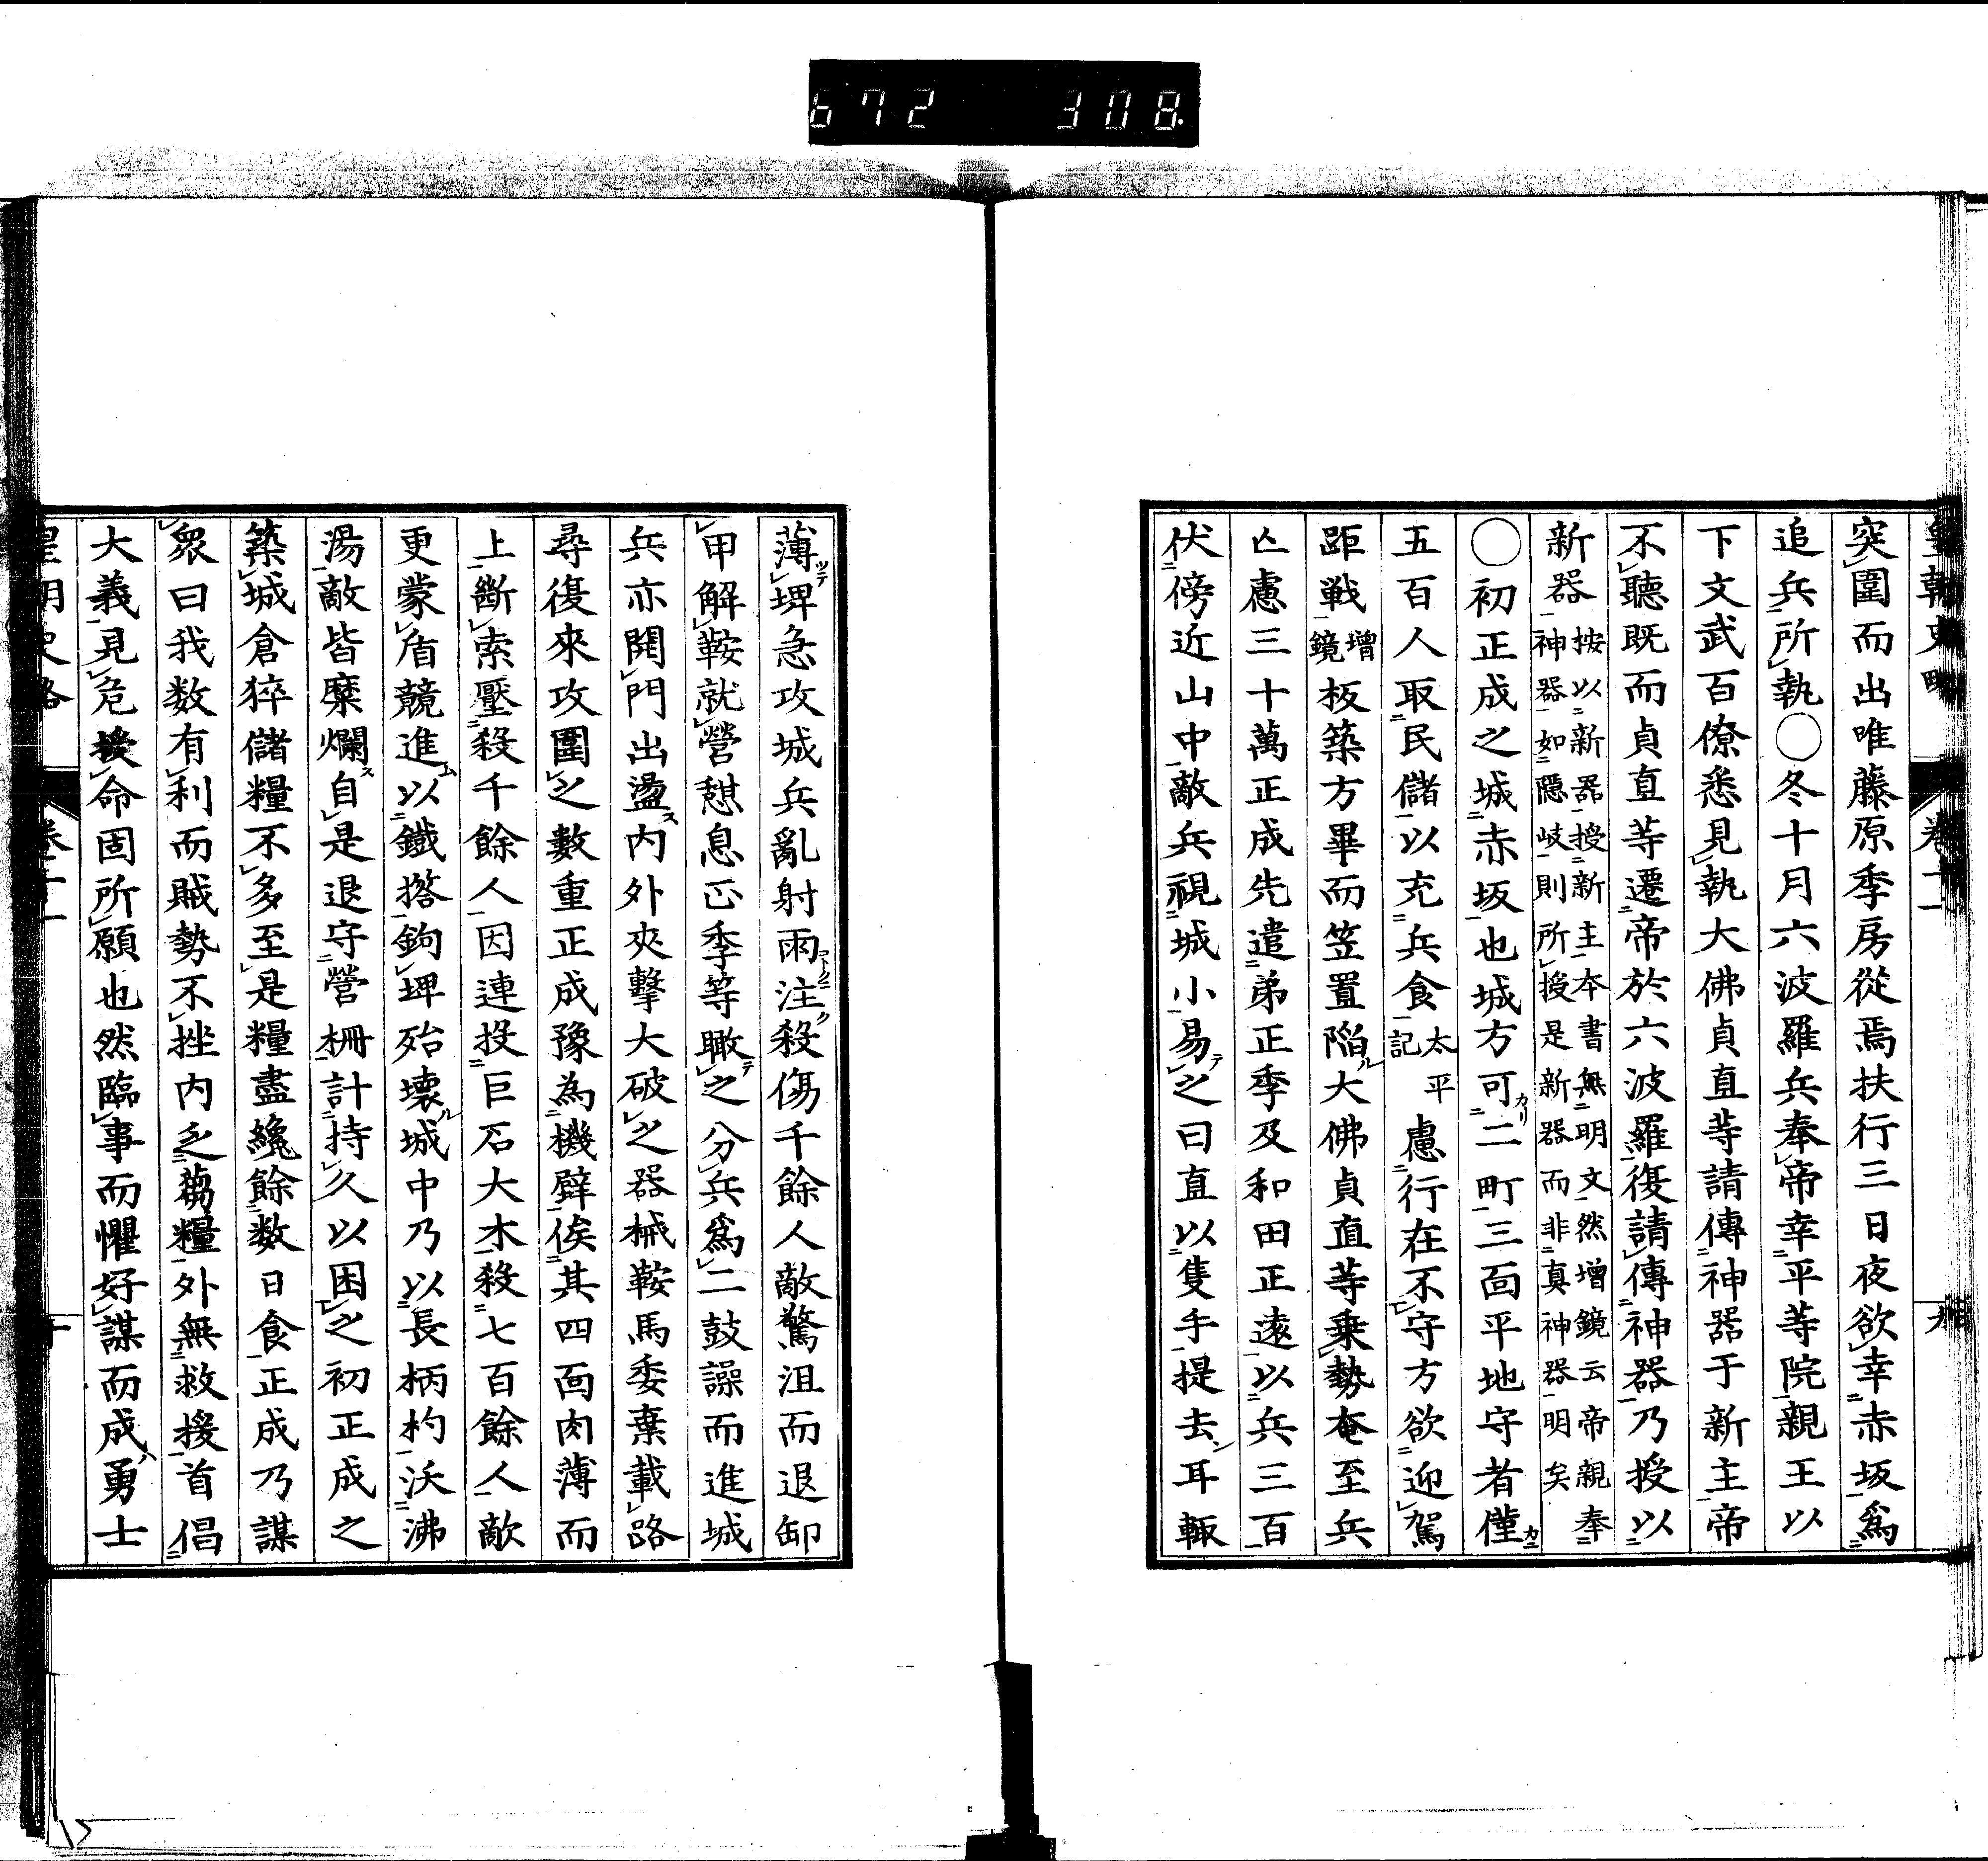 672 308
皇朝史略 卷十一 九
突圍而出唯藤原季房從焉扶行三日夜欲幸赤坂爲
追兵所執○冬十月六波羅兵奉帝幸平等院親王以
下文武百僚悉見執大佛貞直等請傳神器于新主帝
不聽既而貞直等遷帝於六波羅復請傳神器乃授以
新器按以新器授新主本書無明文然增鏡云帝親奉
神器如隱岐則所授是新器而非真神器明矣
○初正成之城赤坂也城方可二町三面平地守者僅
五百人取民儲以充兵食太平記慮行在不守方欲迎駕
距戦增鏡板築方畢而笠置陷大佛貞直等乗勢奄至兵
亡慮三十萬正成先遣弟正季及和田正遠以兵三百
伏傍近山中敵兵視城小易之曰直以隻手提去耳輙
薄埤急攻城兵亂射雨注殺傷千餘人敵驚沮而退卸
甲解鞍就營憇息正季等瞰之分兵爲二鼓譟而進城
兵亦開門出盪内外夾擊大破之器械鞍馬委棄載路
尋復來攻圍之數重正成豫為機壁俟其四面肉薄而
上斷索壓殺千餘人因連投巨石大木殺七百餘人敵
更蒙盾競進以鐵撘鉤埤殆壞城中乃以長柄杓沃沸
湯敵皆糜爛自是退守營柵計持久以困之初正成之
築城倉猝儲糧不多至是糧盡纔餘数日食正成乃謀
衆曰我数有利而賊勢不挫内乏蒭糧外無救援首倡
大義見危授命固所願也然臨事而懼好謀而成勇士
皇朝史略 卷十一 十